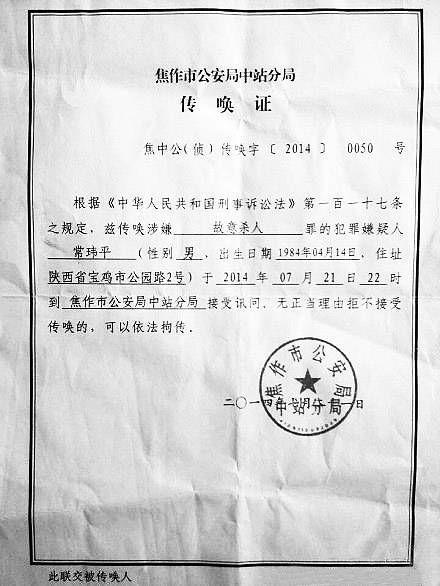 焦作市公安局中站分局
传唤证
焦中公(侦)传唤字〔2014〕0050号
根据《中华人民共和国刑事诉讼法》第一百一十七条
之规定，兹传唤涉嫌 故意杀人 罪的犯罪嫌疑人
常玮平 (性别 男，出生日期 1984年04月14日，住址
陕西省宝鸡市公园路2号)于 2014 年 07 月 21 日 22 时
到 焦作市公安局中站分局 接受讯问。无正当理由拒不接受
传唤的，可以依法拘传。
焦作市公安局
中站分局
二〇一四年七月二十一日
此联交被传唤人